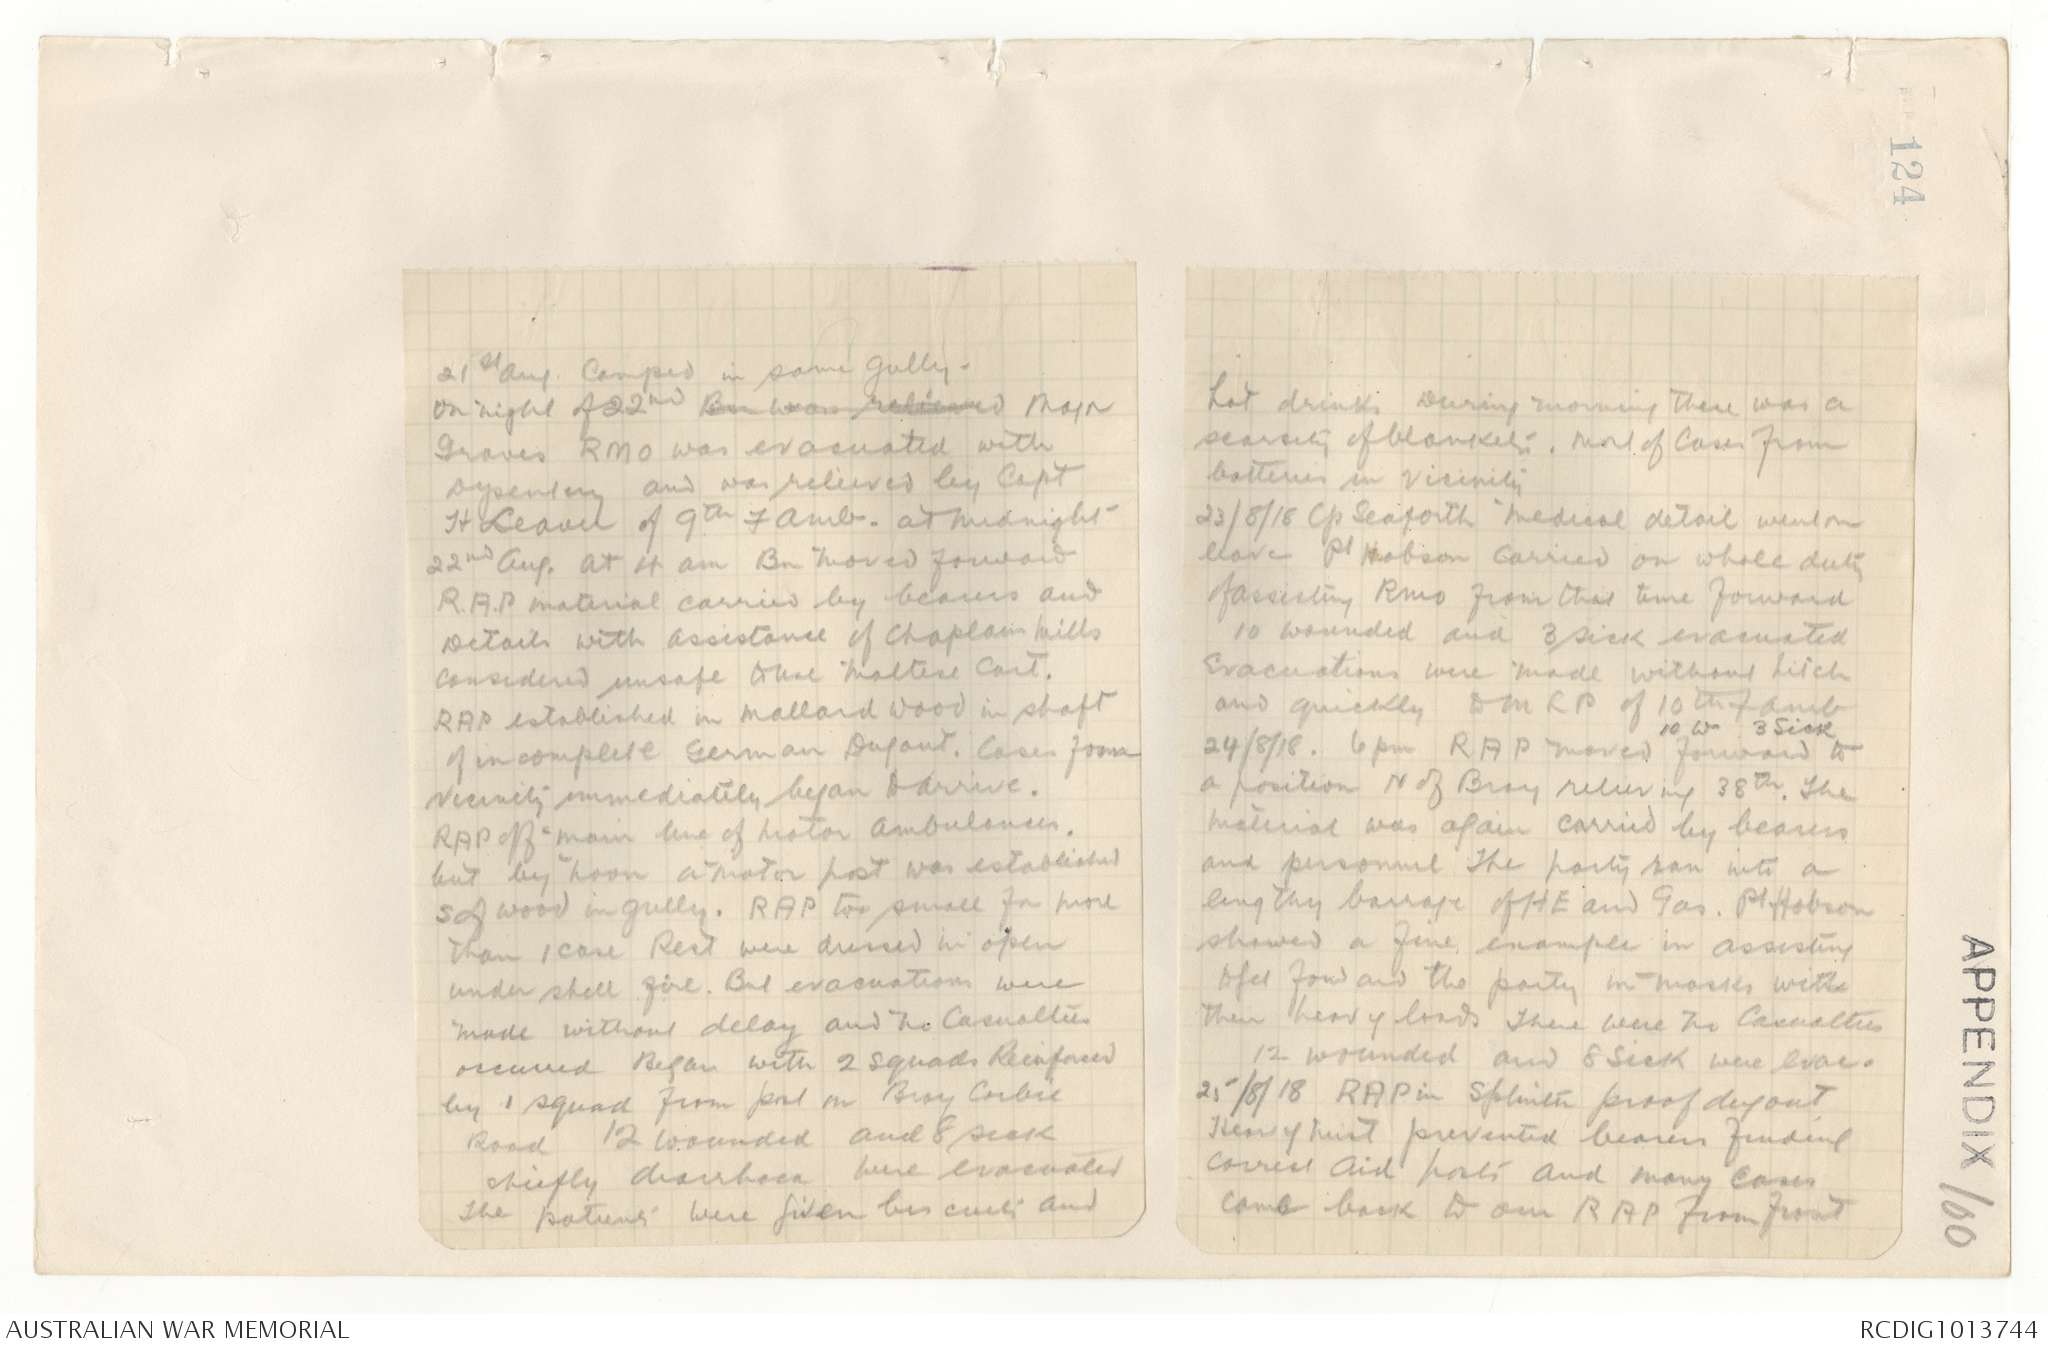 124
21st Aug. Camped in same Gully.
On night of 22nd Bn was relieved Major
Graves RMO was evacuated with
Dysentery and was relieved by Capt
H Leaver of 9th F Amb. at midnight
22nd Aug. At 4 am Bn moved forward
R.A.P material carried by bearers and
Details with assistance of Chaplain Mills
Considered unsafe to use Maltese Cart.
RAP established in Mallard Wood in shaft
of incomplete German Dugout. Cases from
vicinity immediately began to arrive.
RAP off main line of motor Ambulances.
but by noon a motor post was established
S of wood in gully. RAP too small for more
than 1 case Rest were dressed in open
under shell fire. But evacuations were
made without delay and no Casualties
occurred Began with 2 squads Reinforced
by 1 squad from post on Bray Corbie
Road 12 wounded and 8 sick
chiefly diarrhoea were evacuated
The patients were given biscuits and
hot drinks During morning there was a
scarcity of blankets. Most of Cases from
batteries in vicinity
23/8/18 Cp Seaforth Medical detail went on
leave Pt Hobson carried on whole duty
of assisting RMO from that time forward
10 wounded and 3 sick evacuated
Evacuations were made without hitch
and quickly to M L P of 10th F Amb
10 W 3 Sick
24/8/18. 6 pm R A P moved forward to
a position N of Bray relieving 38th. The
material was again carried by bearers
and personnel The party ran into a
lengthy barrage of HE and Gas. Pt Hobson
showed a fine example in assisting
to get forward the party in masks with
their heavy loads There were no Casualties
12 wounded and 8 Sick were evac.
25/8/18 RAP in Splinter proof dugout
Heavy mist prevented bearers finding
correct Aid posts and many cases
came back to our R A P from front
APPENDIX 100
AUSTRALIAN WAR MEMORIAL
RCDIG1013744